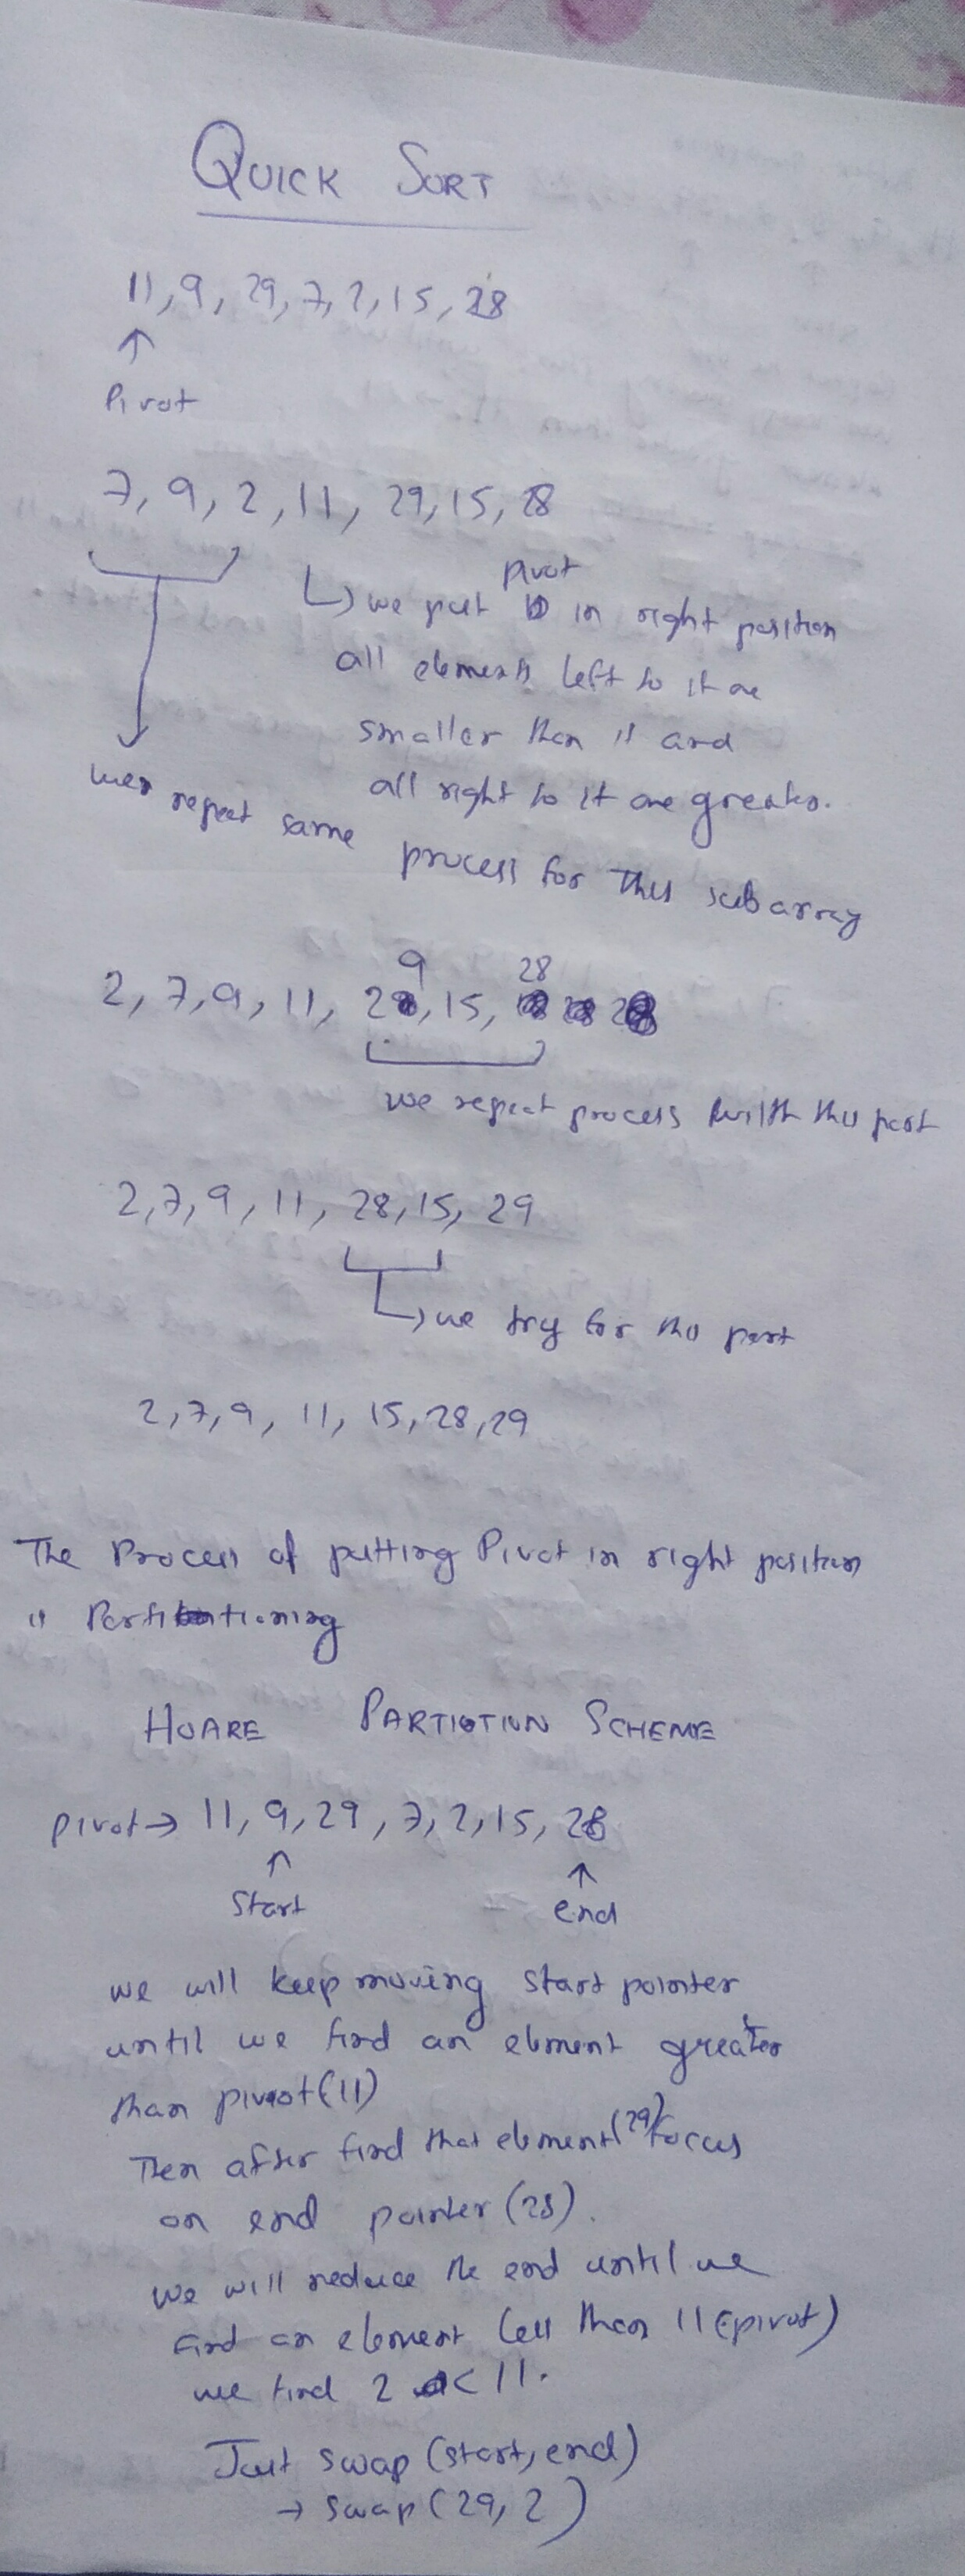 QUICK SORT
11, 9, 29, 7, 2, 15, 28
↑
Pivot
7, 9, 2, 11, 29, 15, 28
pivot
↳ we put in right position
all elements left to it are
smaller than it and
all right to it are greater.
repeat same process for this subarray
9 28
2, 7, 9, 11, 2 , 15,
we repeat process with this part
2, 7, 9, 11, 28, 15, 29
↳ we try for this part
2, 7, 9, 11, 15, 28, 29
The Process of putting Pivot in right position
is Partitioning
HOARE PARTIOTION SCHEME
pivot → 11, 9, 29, 7, 2, 15, 28
↑ ↑
Start end
we will keep moving start pointer
until we find an element greater
than pivot (11)
Then after find that element (29) focus
on end pointer (28).
we will reduce the end until we
find an element less than 11 (pivot)
we find 2 < 11.
Just swap (start, end)
→ swap (29, 2)